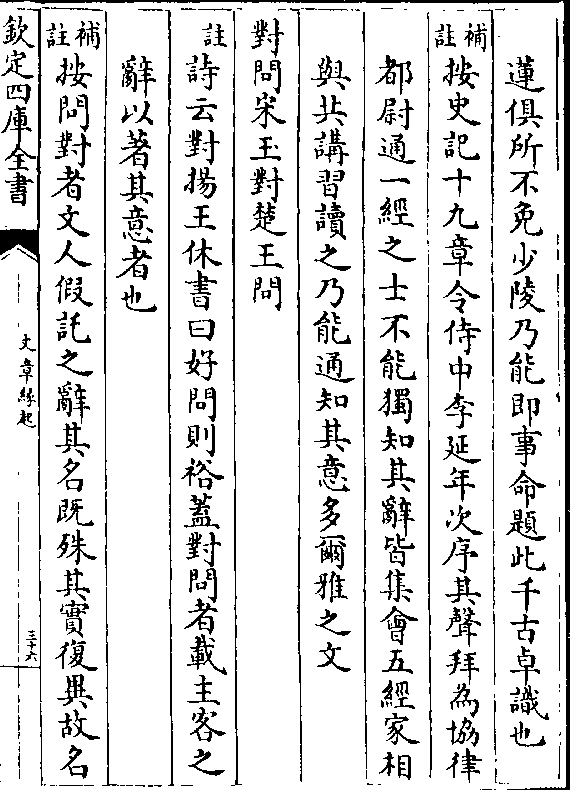 蓮俱所不免少陵乃能即事命題此千古卓識也
補註按史記十九章令侍中李延年次序其聲拜為協律
都尉通一經之士不能獨知其辭皆集會五經家相
與共講習讀之乃能通知其意多爾雅之文
對問宋玉對楚王問
註詩云對揚王休書曰好問則裕蓋對問者載主客之
辭以著其意者也
補註按問對者文人假託之辭其名既殊其實復異故名
欽定四庫全書
文章緣起
三十六